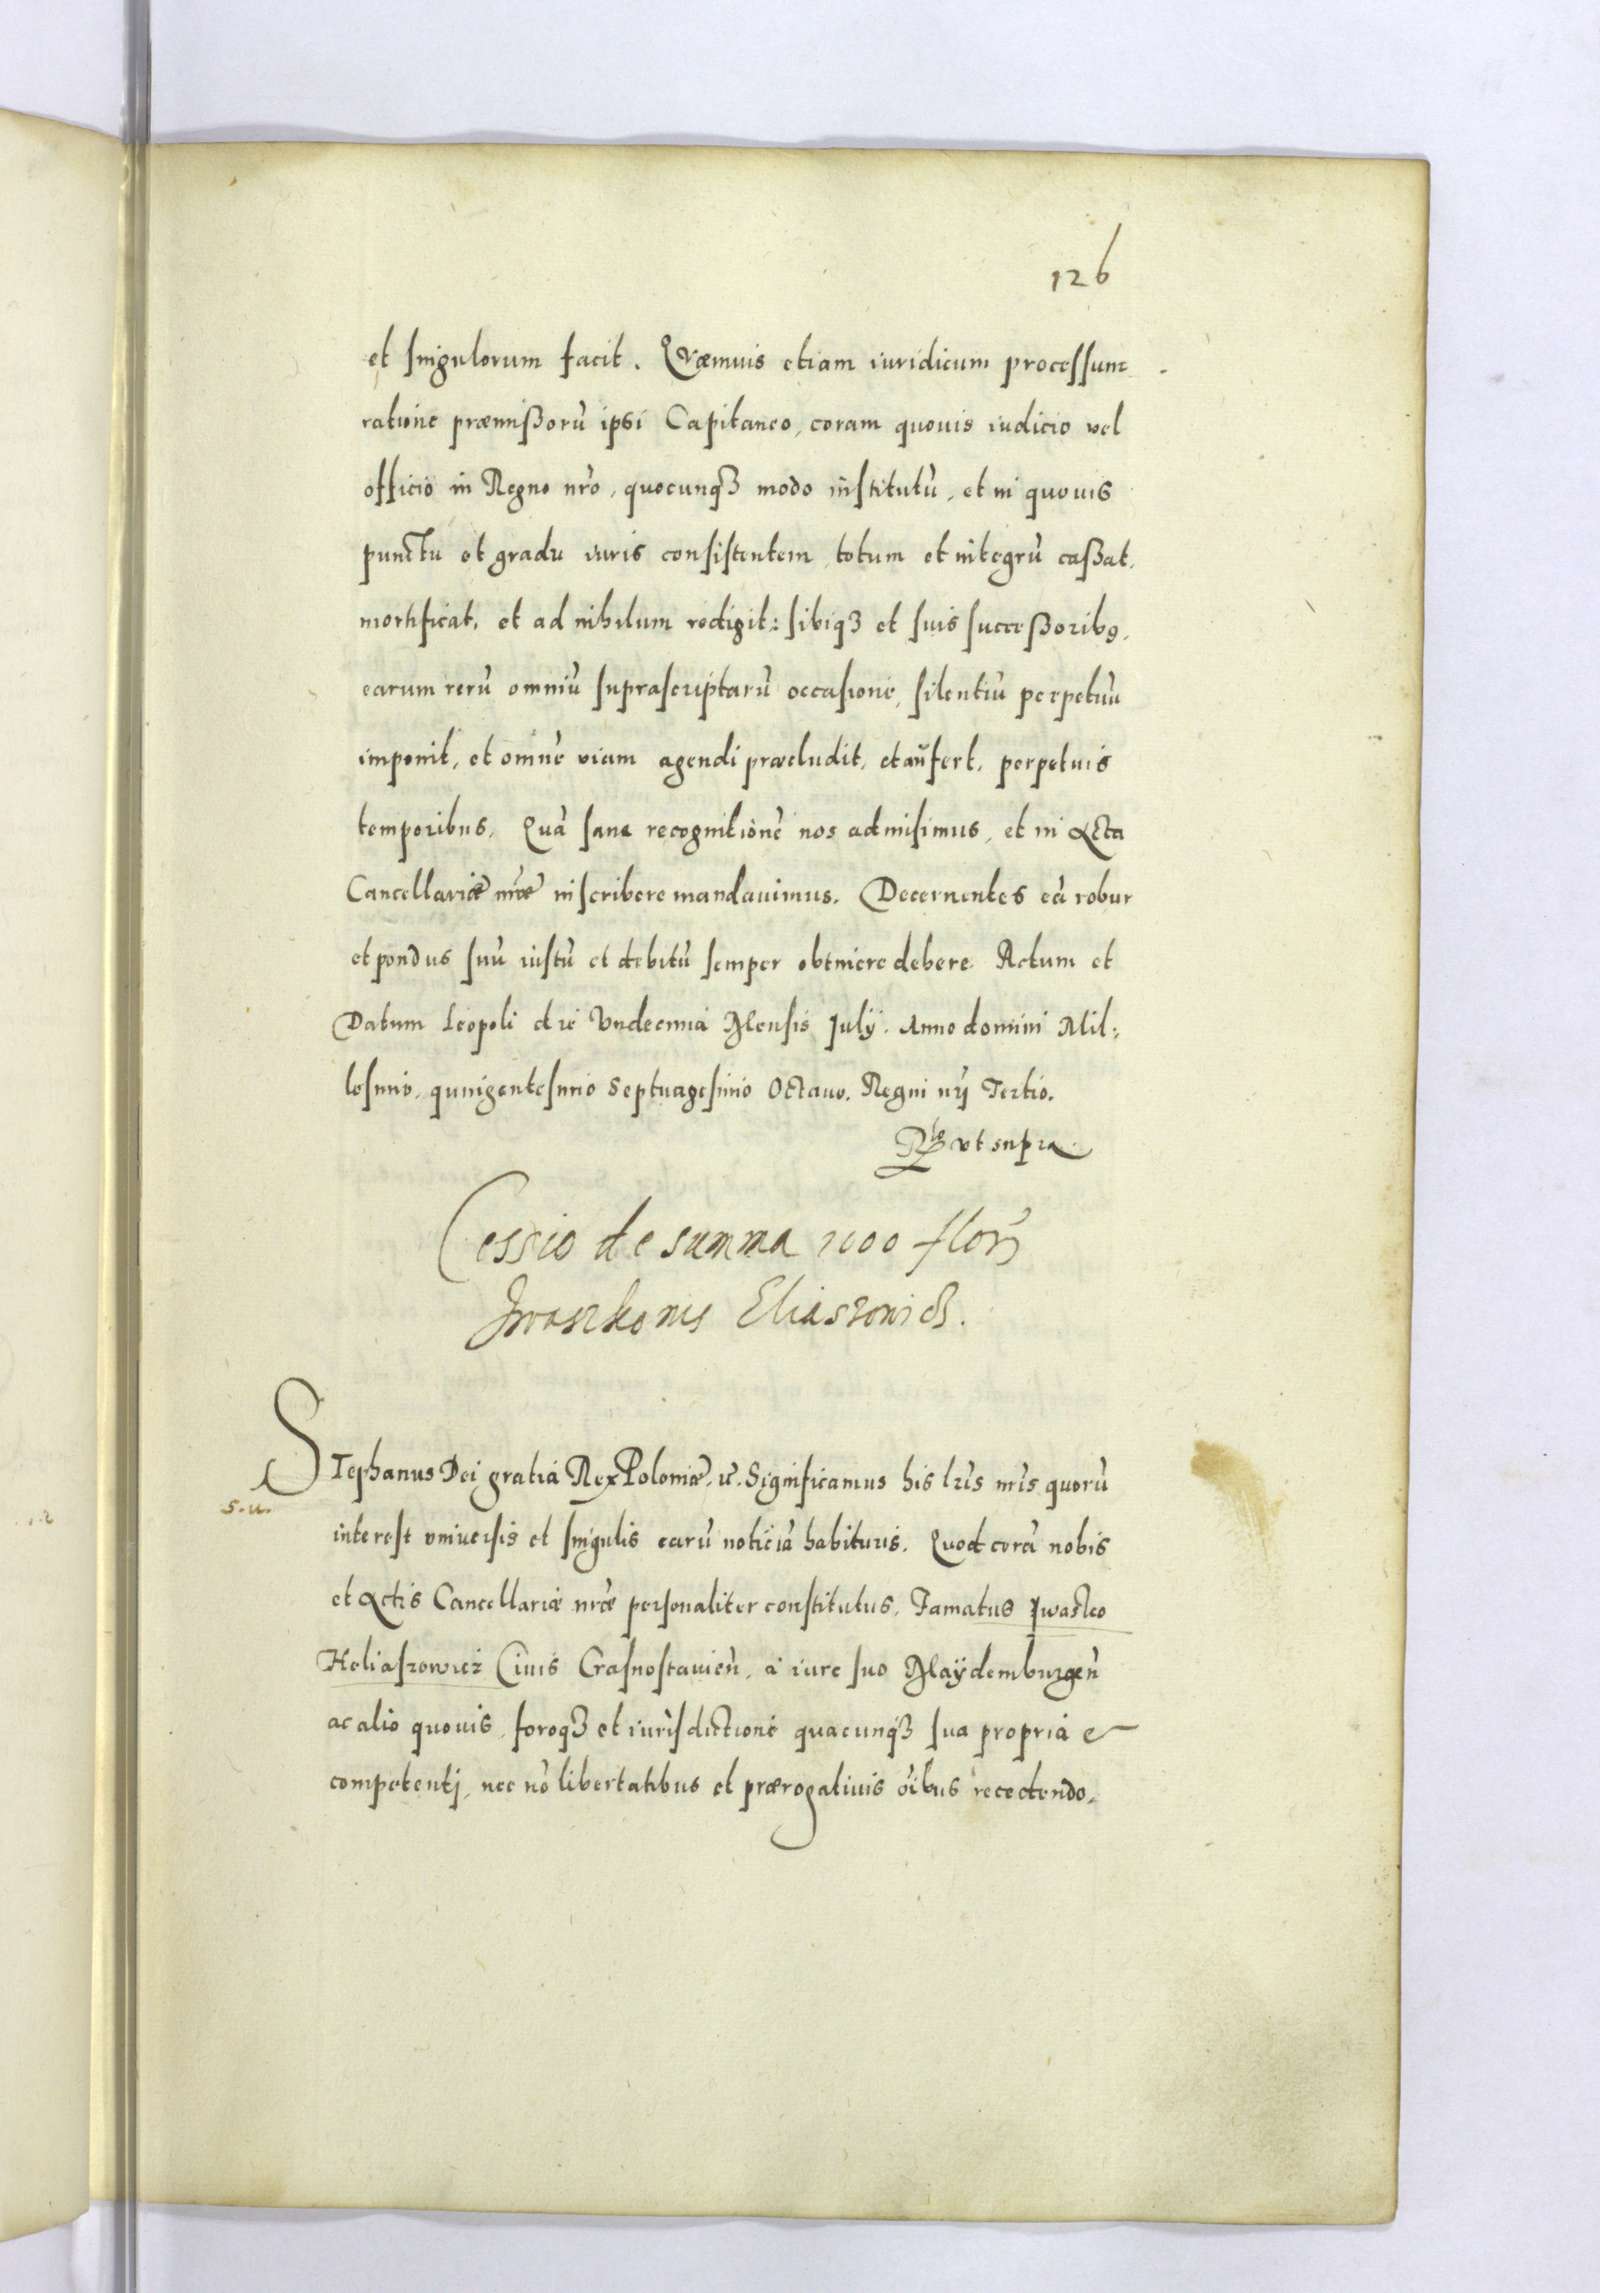 126
et singulorum facit. Quemuis etiam iuridicum processum
ratione præmißorũ ipsi Capitaneo, coram quouis iudicio vel
officio in Regno nrõ, quocunqȝ modo institutũ, et in quouis
punctu et gradu iuris consistentem, totum et integrũ caßat,
mortificat, et ad nihilum redigit: sibiqȝ et suis succeßoribꝰ,
earum rerũ omniũ suprascriptarũ occasione, silentiũ perpetuũ
imponit, et omnẽ viam agendi præcludit, et aufert, perpetuis
temporibus. Quã sane recognitionẽ nos admisimus, et in Acta
Cancellariæ nræ inscribere mandauimus. Decernentes eã robur
et pondus suũ iustũ et debitũ semper obtinere debere. Actum et
Datum Leopoli die Vndecima Mensis July. Anno domini Mil:
lesimo, quingentesimo Septuagesimo Octauo. Regni nrj Tertio.
Rlo vt supra
Cessio de summa 1000 flor
Iwaszkonis Eliaszowicz.
Stephanus Dei gratia Rex Poloniæ. &. Significamus his lrĩs nrĩs quorũ
s. u.
interest vniuersis et singulis earũ noticiã habituris. Quod corã nobis
et Actis Cancellariæ nræ personaliter constitutus, Famatus Iwasko
Heliaszowicz Ciuis Crasnostauieñ, a iure suo Maÿdemburgeñ
ac alio quouis, foroqȝ et iurisdictione quacunqȝ sua propria e
competentj, nec nõ libertatibus et prærogatiuis oĩbus recedendo,